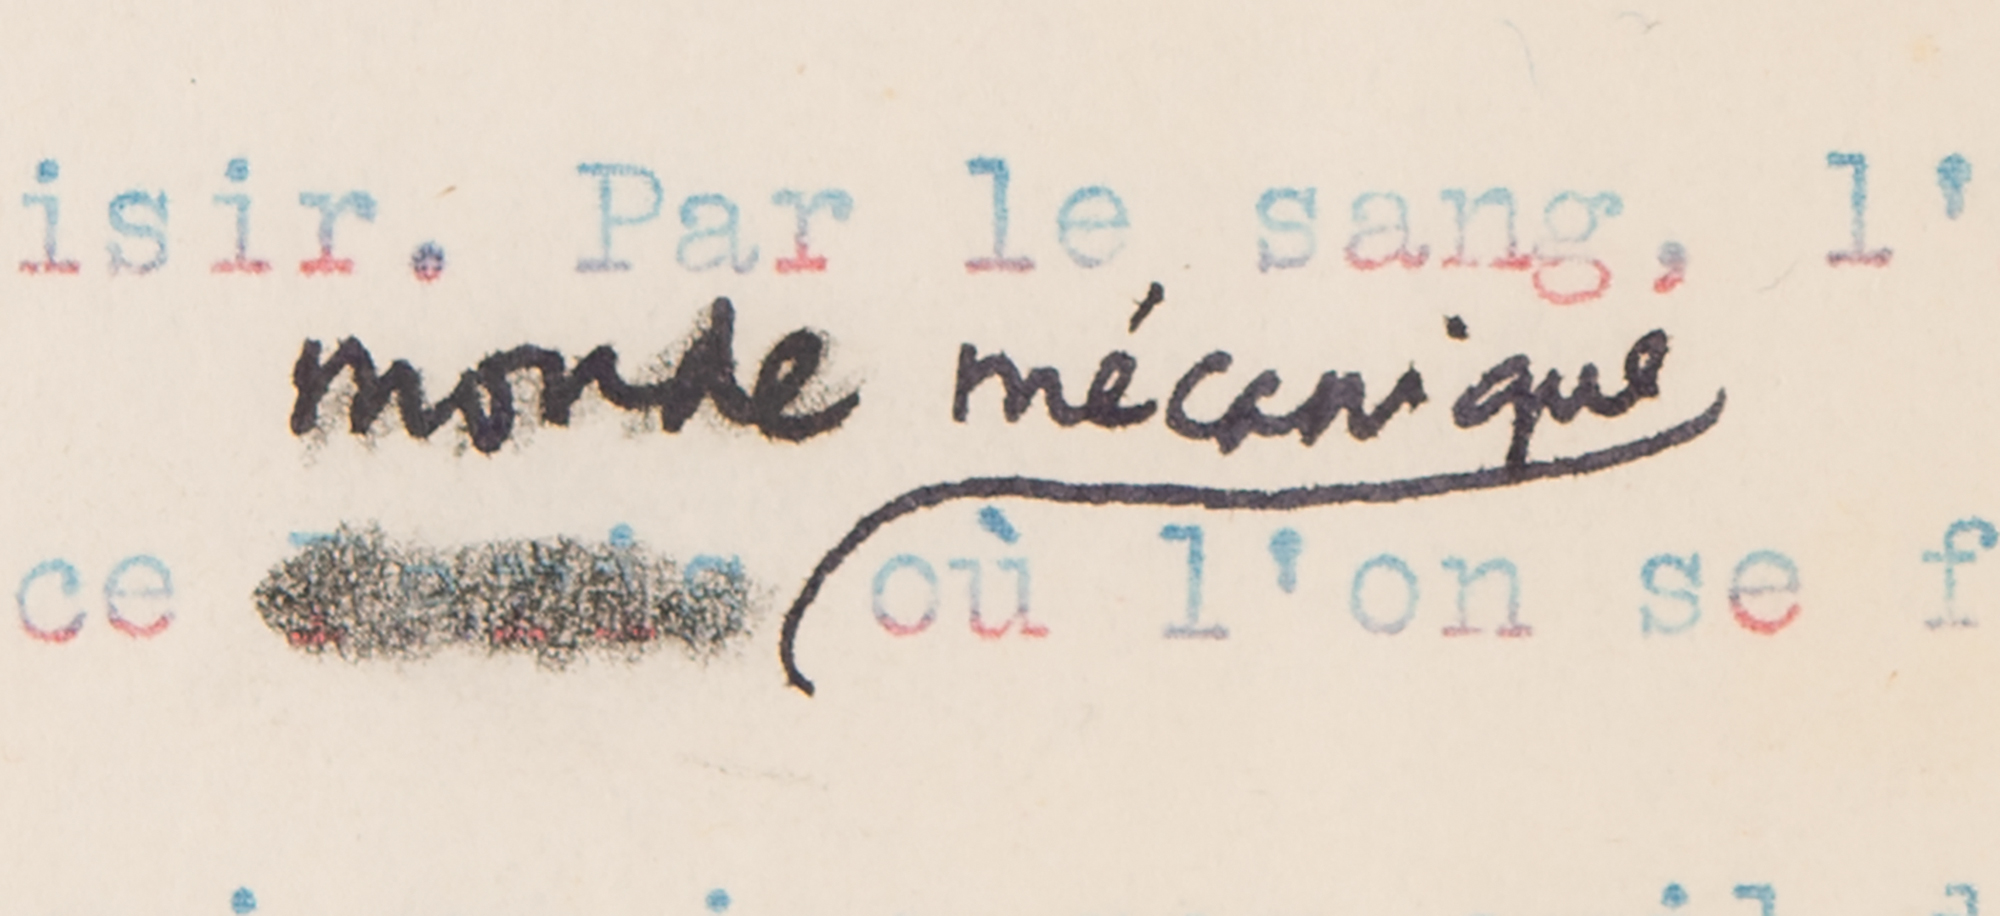 isir. Par le sang, l'
monde mécanique
ce où l'on se f